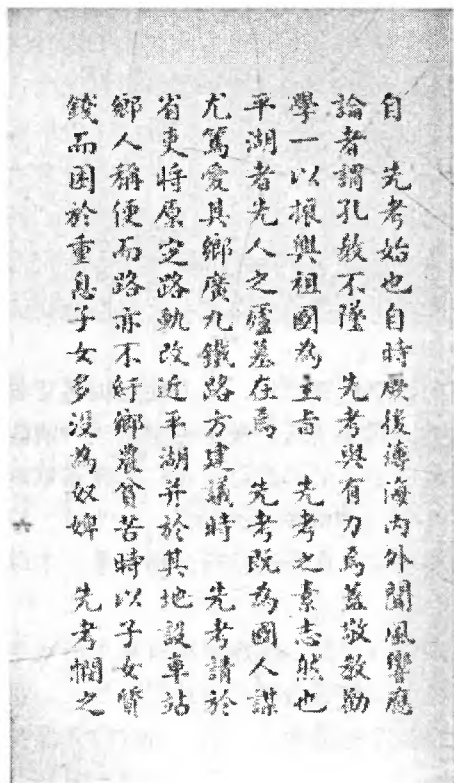 自　先考始也自時厥後薄海內外聞風響應
論者謂孔教不墜　先考與有力焉蓋敬教勸
學一以振興祖國為主旨　先考之素志然也
平湖者先人之廬墓在焉　先考既為國人謀
尤篤愛其鄉廣九鐵路方建議時　先考請於
省吏將原定路軌改近平湖并於其地設車站
鄉人稱便而路亦不紆鄉農貧苦時以子女質
錢而困於重息子女多沒為奴婢　先考憫之
六